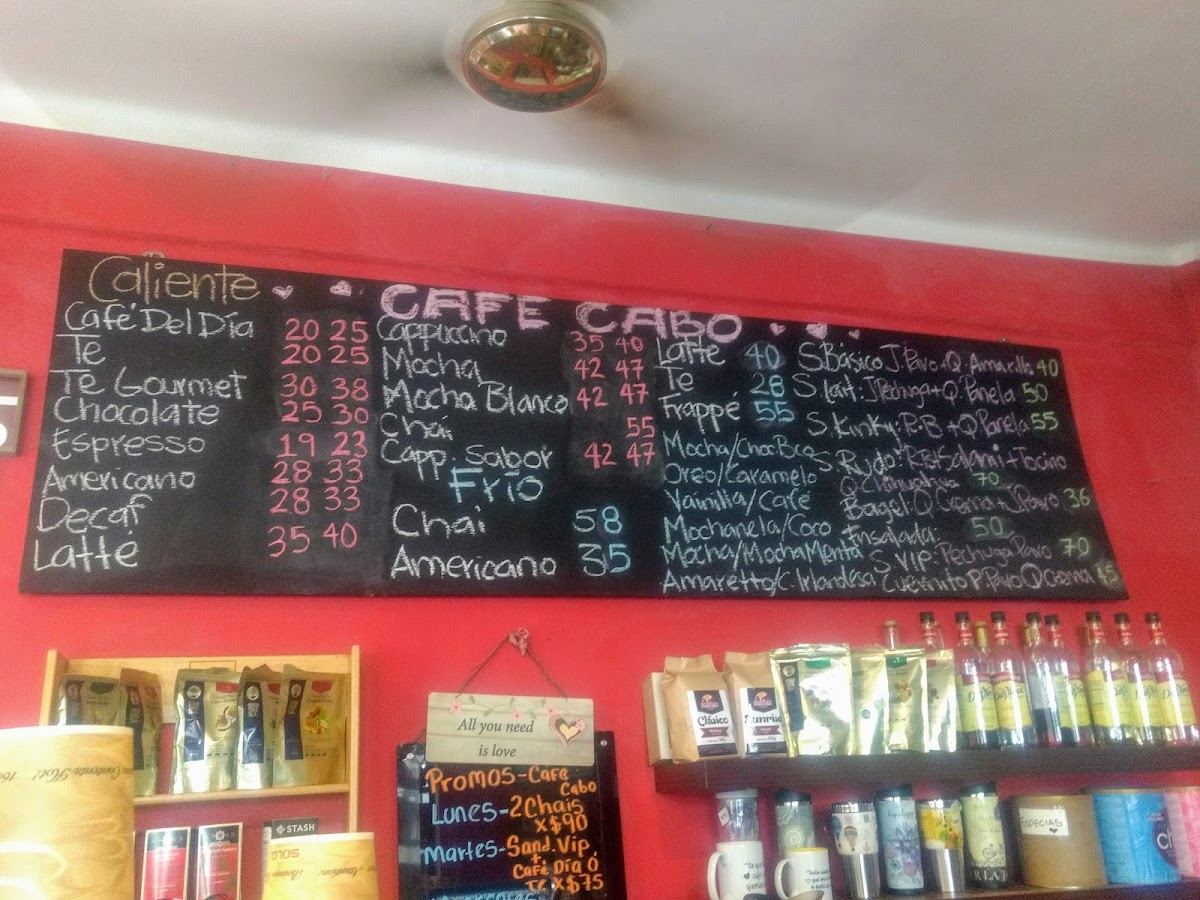 Caliente
Café Del Día 20 25
Te 20 25
Te Gourmet 30 38
Chocolate 25 30
Espresso 19 23
Americano 28 33
Decaf 28 33
Latté 35 40
CAFE CABO
Cappuccino 35 40
Mocha 42 47
Mocha Blanco 42 47
Chai 55
Capp. Sabor 42 47
Frio
Chai 58
Americano 35
Latte 40
Te 28
Frappé 55
Mocha/Choc Bco
Oreo/Caramelo
Vainilla/Café
Mochanela/Coco
Mocha/MochaMenta
Amaretto/C. Irlandesa
S. Básico J. Pavo+Q. Amarillo 40
S. Lait: J. Pechuga+Q. Panela 50
S. Kinky: R.B+Q Panela 55
S. Rudo: R.B+Salami+Tocino
Q. Chihuahua 70
Bagel: Q Crema+J. Pavo 36
Ensalada: 50
S. VIP: Pechuga Pavo 70
Cuernito P. Pavo Q Crema 45
All you need
is love
Promos-Cafe
Cabo
Lunes-2 Chais
X $90
Martes-Sand. Vip
+
Café Día Ó
Te X $75
Clásico
Sunrise
STASH
ESPECIAS